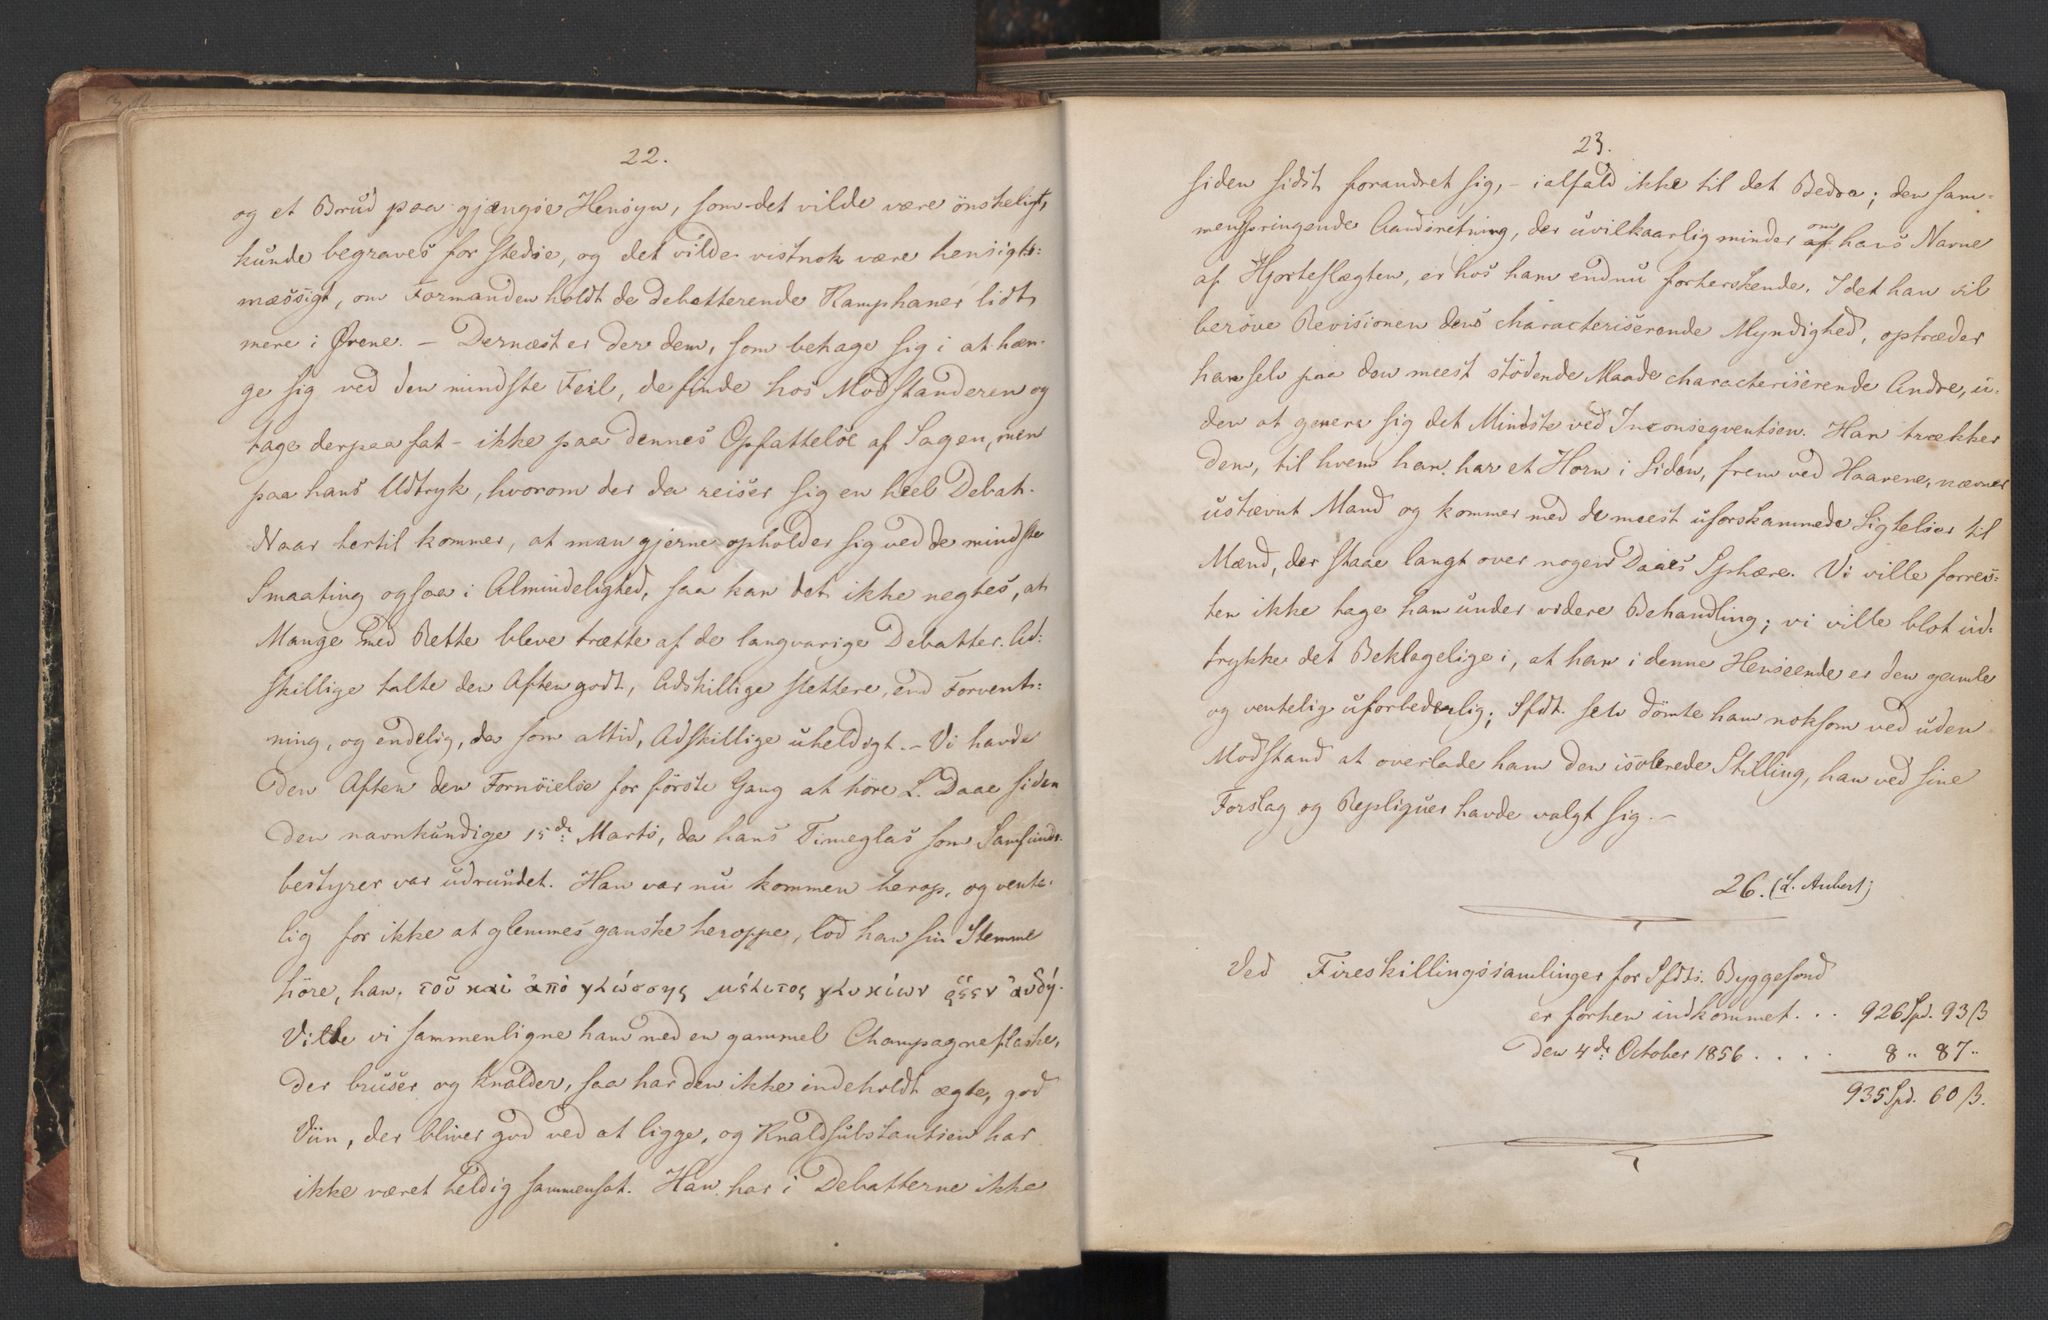 22.
og et Brud paa gjængse Hensyn, som det vilde være önskeligt,
kunde begraves for stedse, og det vilde vistnok være hensigts:
mæssigt, om Formanden holdt de debatterende Kamphaner lidt
mere i Ørene. – Dernæst er der dem, som behage sig i at hæn-
ge sig ved den mindste Feil, de finde hos Modstanderen og
tage derpaa fat – ikke paa dennes Opfattelse af Sagen, men
paa hans Udtryk, hvorom der da reiser sig en heel Debat.
Naar hertil kommer, at man gjerne opholder sig ved de mindste
Smaating ogsaa i Almindelighed, saa kan det ikke negtes, at
Mange med Rette bleve trætte af de langvarige Debatter. Ad:
skillige talte den Aften godt, Adskillige slettere, end Forvent:
ning, og endelig, da som altid, Adskillige uheldigt. – Vi havde
den Aften den Fornöielse for förste Gang at höre L. Daae siden
den navnkundige 15de Marts, da hans Timeglas som Samfunds-
bestyrer var udrundet. Han var nu kommen herop, og vente-
lig for ikke at glemmes ganske heroppe, lod han sin Stemme
höre, han. τοῦ καὶ ἀπὸ γλώσσης μέλιτος γλυκίων ῥέεν αὐδή.
Ville vi sammenligne ham med en gammel Champagneflaske,
der bruser og knalder, saa har den ikke indeholdt ægte, god
Viin, der bliver god ved at ligge, og Knaldsubstantsen har
ikke været heldig sammensat. Han har i Debatterne ikke
23.
siden sidst forandret sig, – ialfald ikke til det Bedre; den sam-
menspringende Aandsretning, der uvilkaarlig minder af om hans Navne
af Hjorteslægten, er hos ham endnu forherskende. Idet han vil
beröve Revisionen dens characteriserende Myndighed, optræder
han selv paa den meest stödende Maade characteriserende Andre, u-
den at genere sig det Mindste ved Inconseqventsen. Han trækker
dem, til hvem han har et Horn i Siden, frem ved Haarene, nævner
ustævnt Mand og kommer med de meest uforskammede Sigtelser til
Mænd, der staae langt over nogen Daaes Sphære. Vi ville forres-
ten ikke tage ham under videre Behandling; vi ville blot ud-
trykke det Beklagelige i, at han i denne Henseende er den gamle
og ventelig uforbederlig; Sfdt. selv dömte ham noksom ved uden
Modstand at overlade ham den isolerede Stilling, han ved sine
Forslag og Repliquer havde valgt sig. –
26. (L. Aubert)
Ved Fireskillingssamlinger for Sfdts. Byggefond
er forhen indkommet . . . 926 Spd. 93 ß
den 4de October 1856 . . . . 8 „ 87 „
935 Spd. 60 ß.